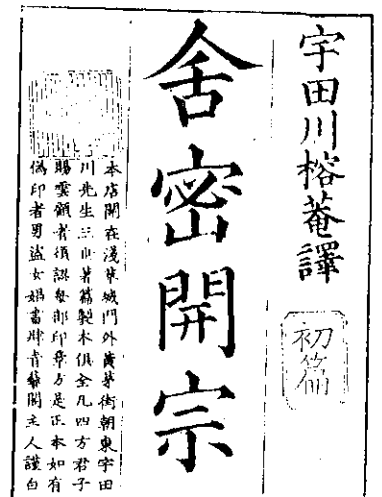 宇田川榕菴譯
初篇
舍密開宗
本店開在淺草城門外黄茅街朝東宇田
川先生三世著篇製本俱全凡四方君子
賜雲顧者須認印章方是正本如有
偽印者男盗女娼書肆青藜閣主人謹白